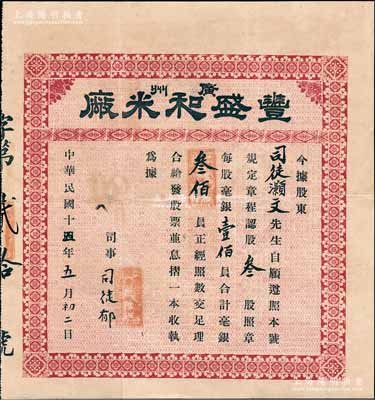 廣州
豐盛和米廠
今據股東
司徒灝文先生自願遵照本號
規定章程認股叁股照章
每股毫銀壹佰員合計毫銀
叁佰員正經照數交足理
合給發股票並息摺一本收執
為據
司事 司徒郁
中華民國十五年五月初二日
字第貳拾號